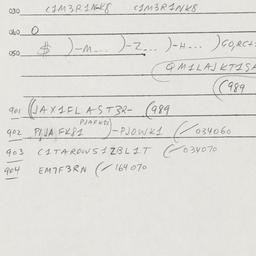 030 C1M3R1NK8 C1M3R1NK8
040 O
050 $ )-M... )-Z... )-H... )GO,RC
QM1LAJKT1S
((989
901 (JAX1FLAST3R- (989
PJAFK81
902 PIJA,FK81 )-PJOWK1 (/034060
903 C1TAROWS1ZBL1T (/034070
904 EM7F3RN (/164070